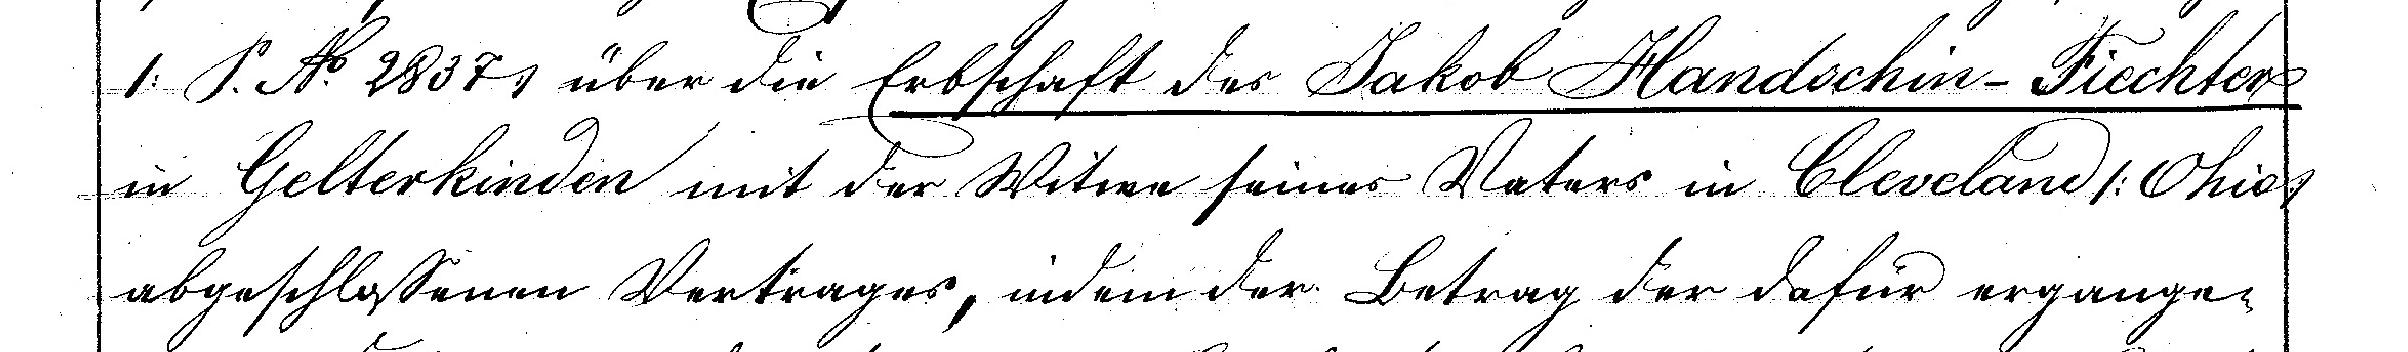 /: P. No. 2837 :/ über die Erbschaft des Jakob Handschin-Fiechter
in Gelterkinden mit der Witwe seines Vaters in Cleveland /: Ohio :/
abgeschlossenen Vertrages, indem der Betrag der dafür ergange-